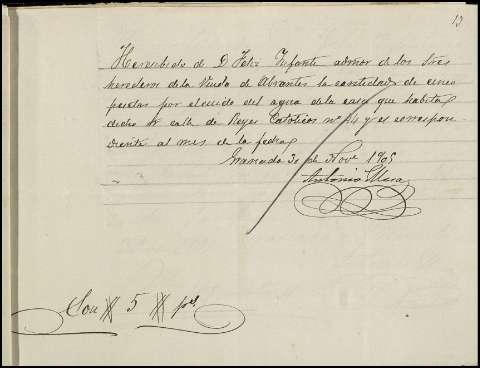 13
He recibido de D Felix Infante admor de los Sres
herederos de la Viuda de Abrantes la cantidad de cinco
pesetas por el cuido del agua de la casa que habita
dicho Sr calle de Reyes Catolicos nº 24 y es correspon-
diente al mes de la fecha
Granada 30 de Nove 1905
Antonio
Son # 5 # pts